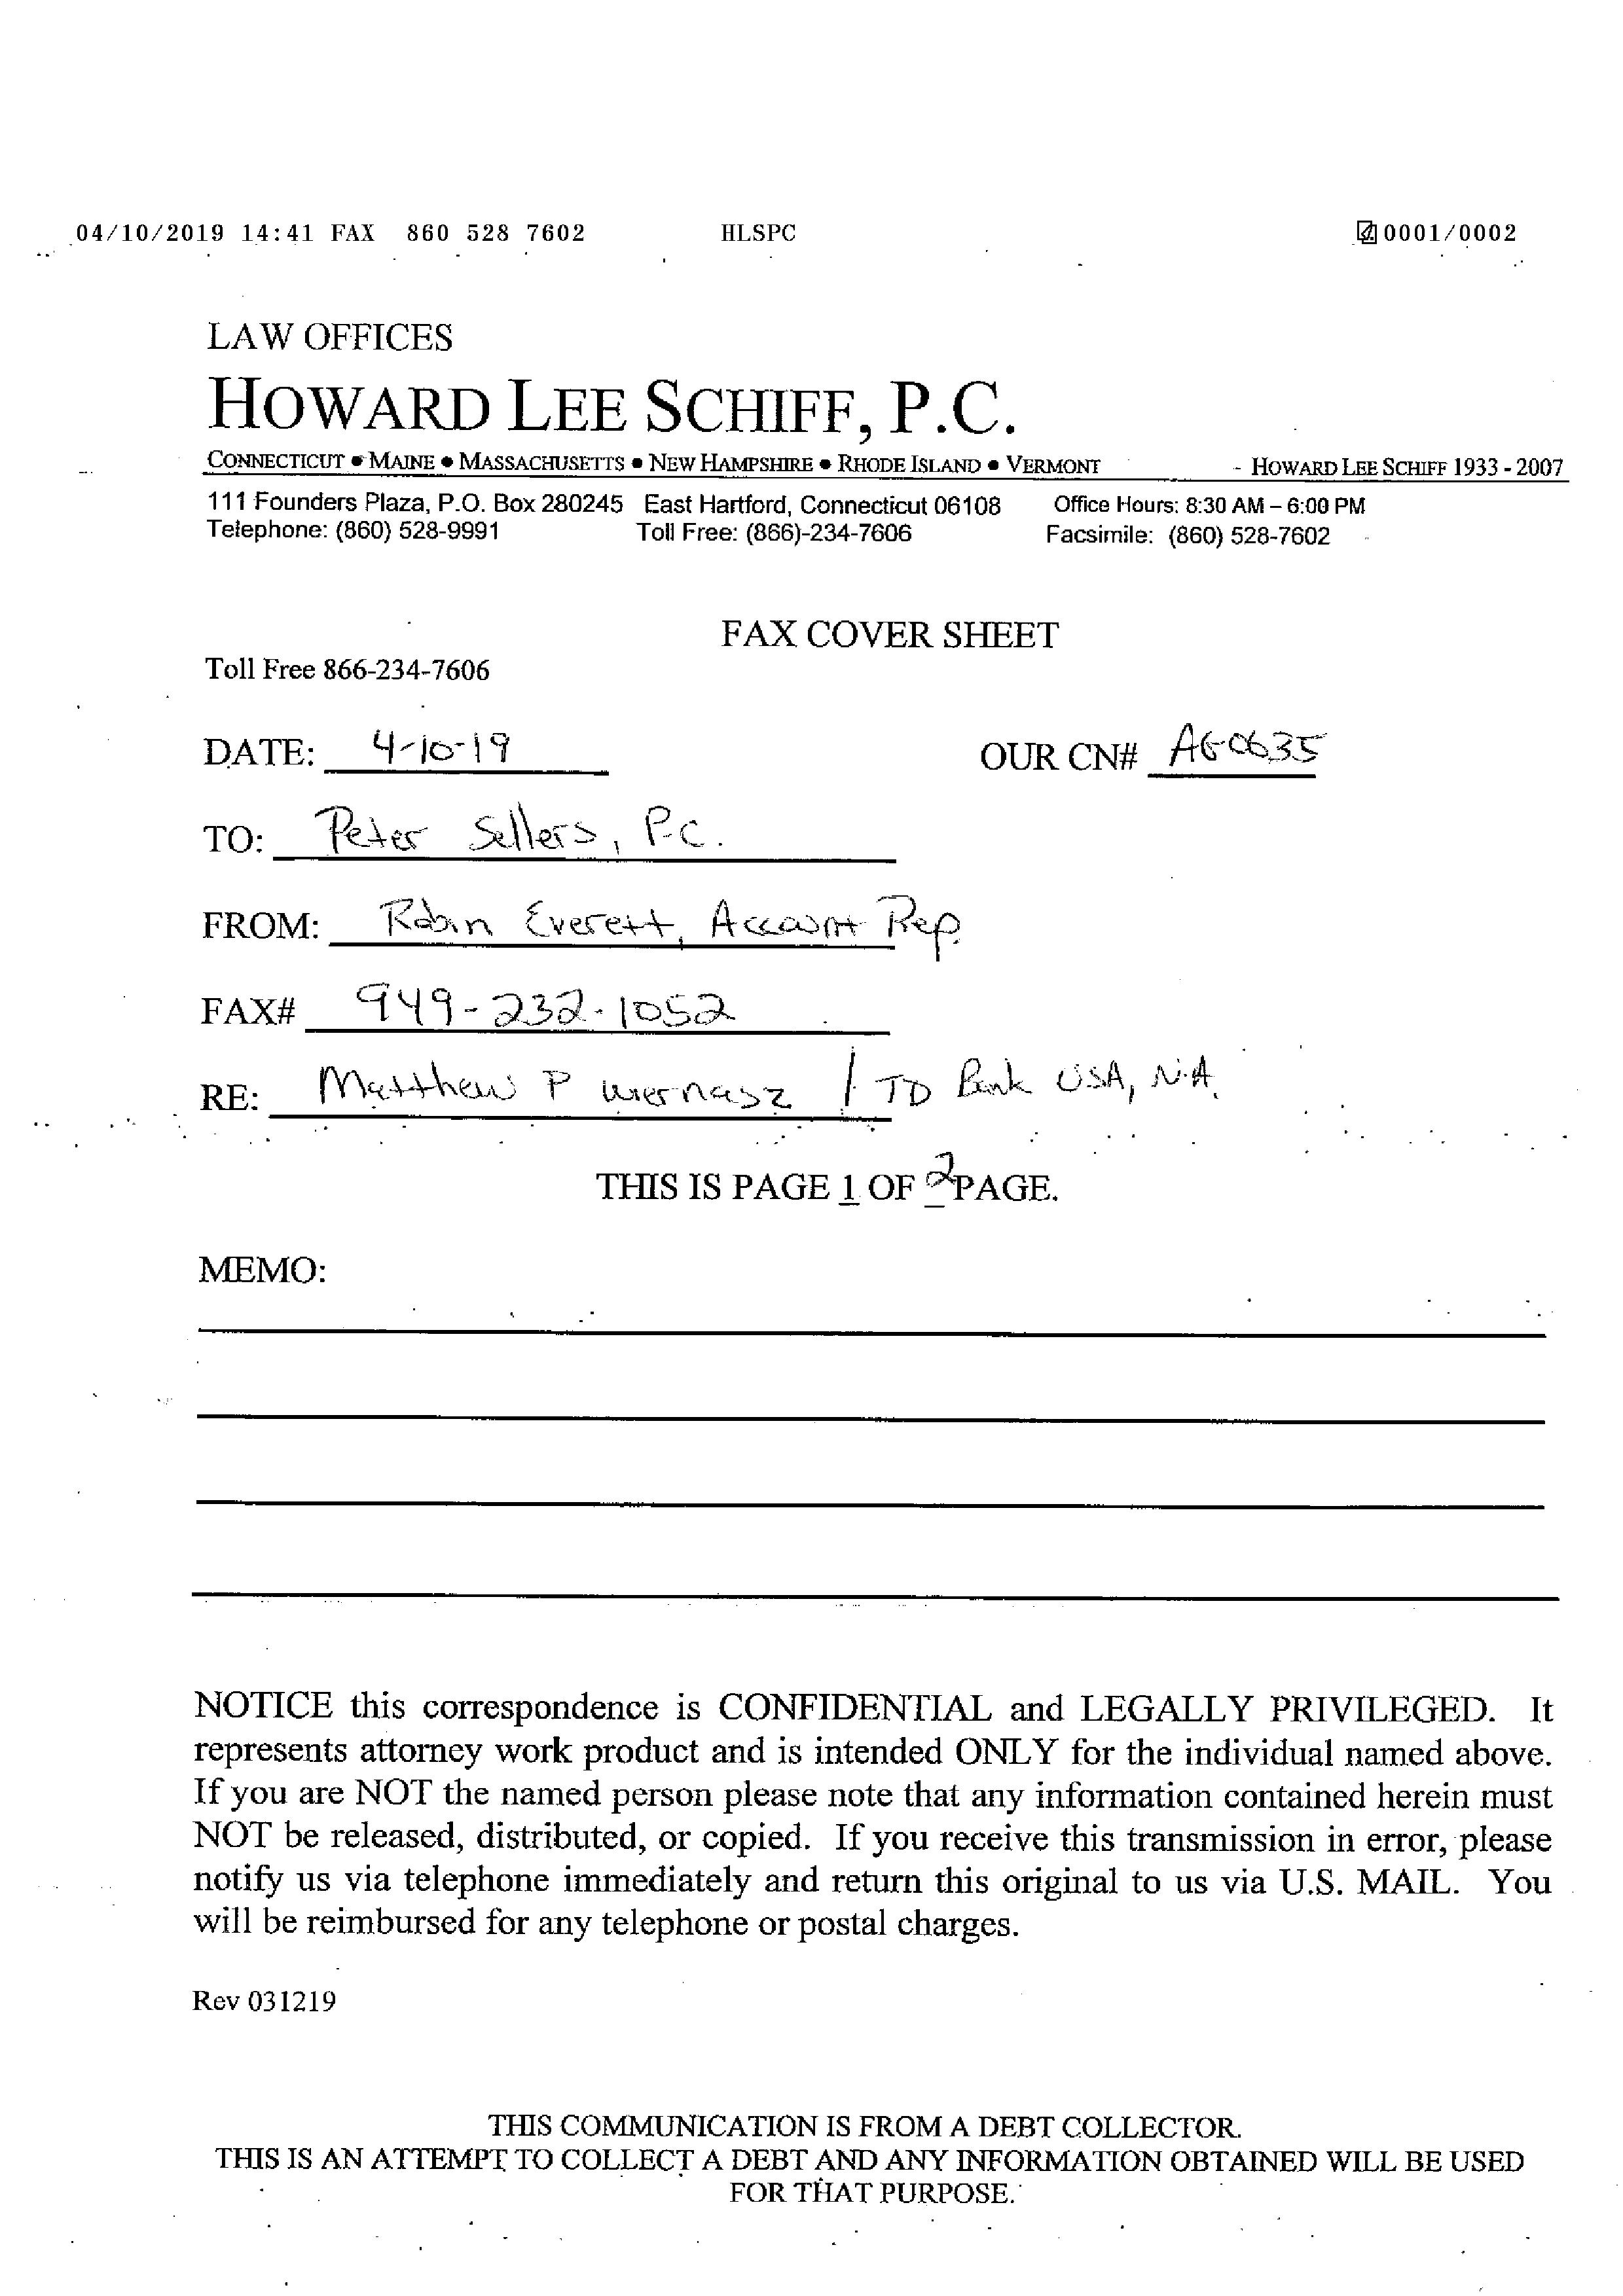 04/10/2019 14:41 FAX 860 528 7602 HLSPC 0001/0002
LAW OFFICES
HOWARD LEE SCHIFF, P.C.
CONNECTICUT • MAINE • MASSACHUSETTS • NEW HAMPSHIRE • RHODE ISLAND • VERMONT - HOWARD LEE SCHIFF 1933 - 2007
111 Founders Plaza, P.O. Box 280245 East Hartford, Connecticut 06108 Office Hours: 8:30 AM – 6:00 PM
Telephone: (860) 528-9991 Toll Free: (866)-234-7606 Facsimile: (860) 528-7602
FAX COVER SHEET
Toll Free 866-234-7606
DATE: 4-10-19 OUR CN# AG0635
TO: Peter Sellers, P.C.
FROM: Robin Everett, Account Rep.
FAX# 949-232-1052
RE: Matthew P Wiernasz / TD Bank USA, N.A.
THIS IS PAGE 1 OF 2 PAGE.
MEMO:
NOTICE this correspondence is CONFIDENTIAL and LEGALLY PRIVILEGED. It
represents attorney work product and is intended ONLY for the individual named above.
If you are NOT the named person please note that any information contained herein must
NOT be released, distributed, or copied. If you receive this transmission in error, please
notify us via telephone immediately and return this original to us via U.S. MAIL. You
will be reimbursed for any telephone or postal charges.
Rev 031219
THIS COMMUNICATION IS FROM A DEBT COLLECTOR.
THIS IS AN ATTEMPT TO COLLECT A DEBT AND ANY INFORMATION OBTAINED WILL BE USED
FOR THAT PURPOSE.